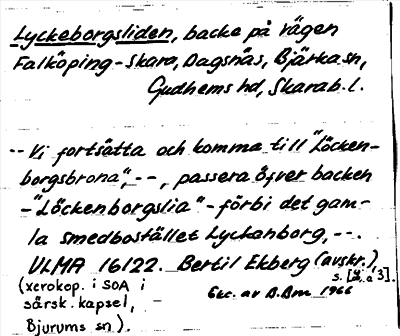 Lyckeborgsliden, backe på vägen
Falköping-Skara, Dagsnäs, Bjärka sn,
Gudhems hd, Skarab. l.
-- Vi fortsätta och komma till "Löcken-
borgsbrona", --, passera öfver backen
-"Löckenborgslia"- förbi det gam-
la smedbostället Lyckanborg, --.
ULMA 16122. Bertil Ekberg (avskr.)
s. 3].
(xerokop. i SOA i
särsk. kapsel,
Exc. av B.Bm. 1966
Bjurums sn).